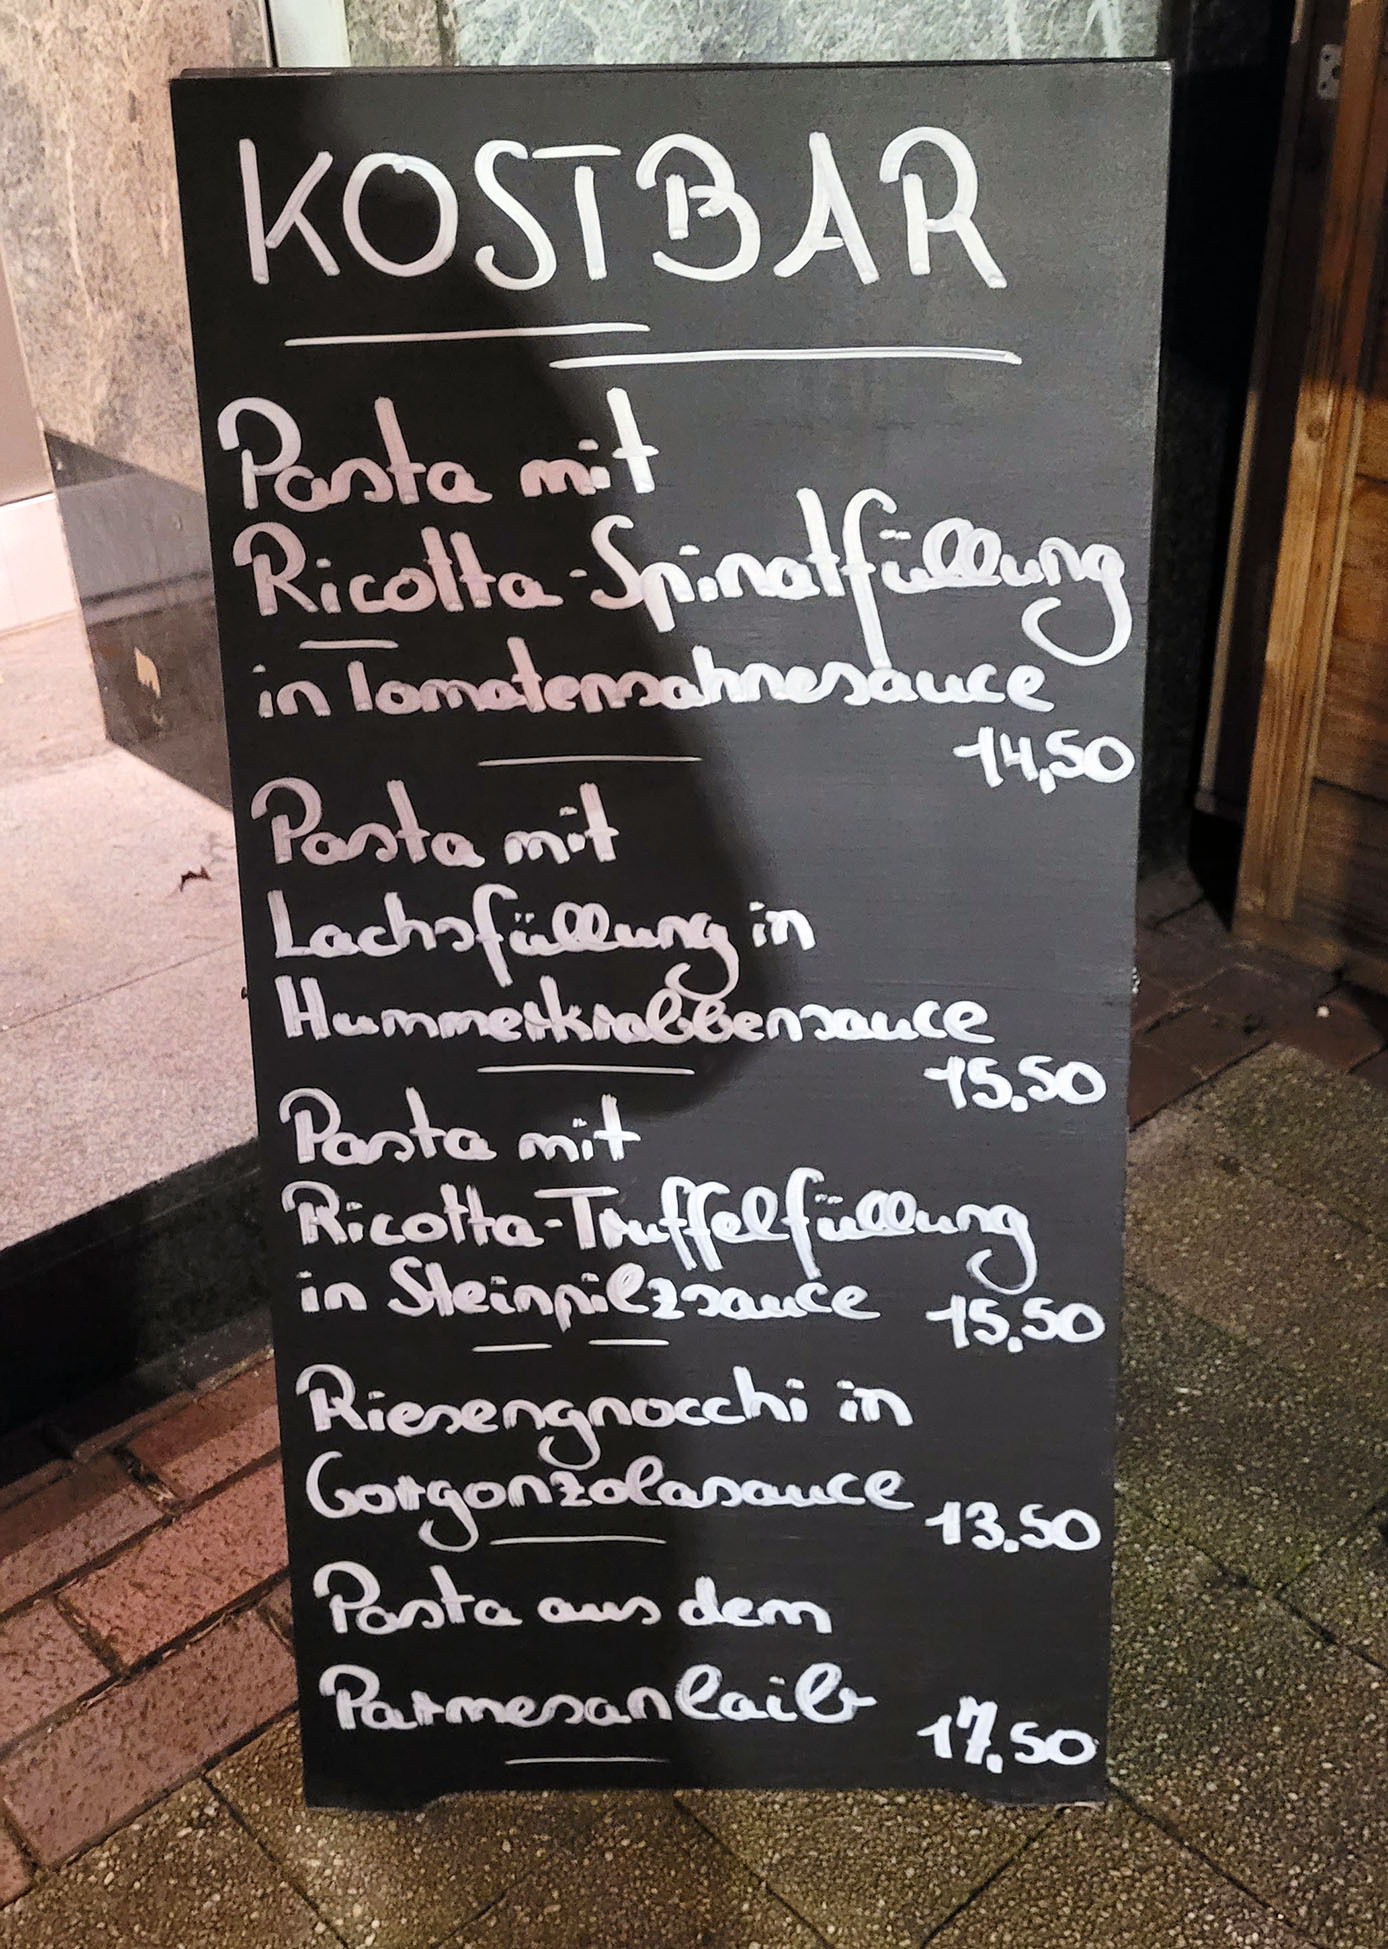 KOSTBAR
Pasta mit
Ricotta-Spinatfüllung
in Tomatensahnesauce
14,50
Pasta mit
Lachsfüllung in
Hummerkrabbensauce
15.50
Pasta mit
Ricotta-Truffelfüllung
in Steinpilzsauce 15.50
Riesengnocchi in
Gorgonzolasauce 13.50
Pasta aus dem
Parmesanlaib 17.50